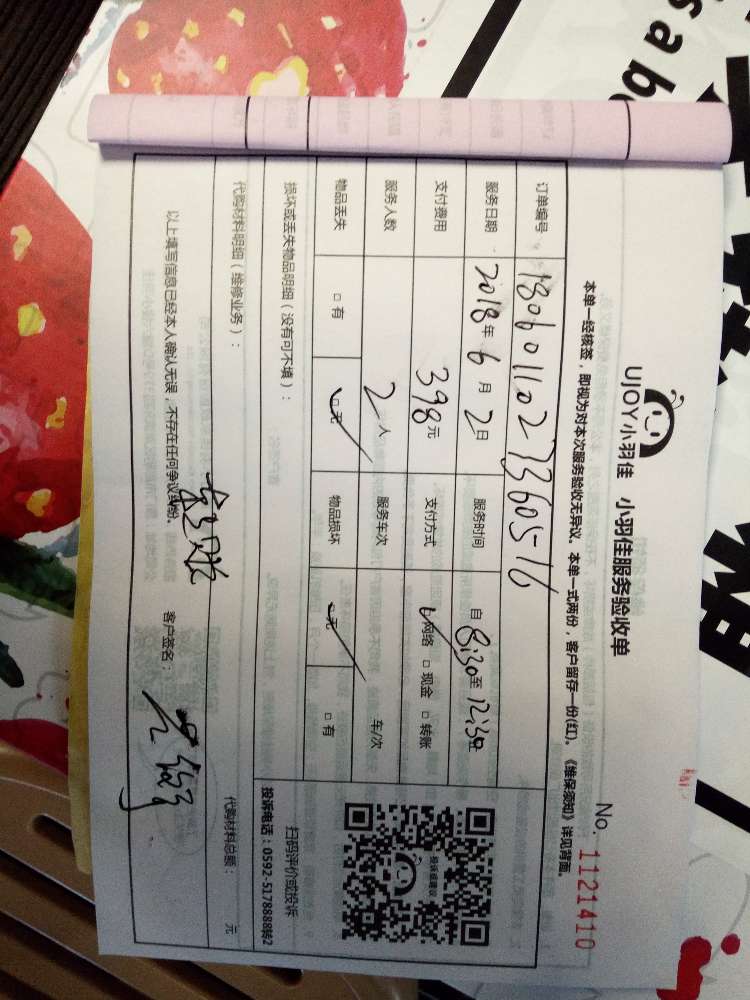 UJOY小羽佳 小羽佳服务验收单
No. 1121410
本单一经核签，即视为对本次服务验收无异议。本单一式两份，客户留存一份(红)。《维保须知》详见背面。
订单编号 180601102736 0516
服务日期 2018年6月2日 服务时间 自8:30至12:30
支付费用 398元 支付方式 网络 □现金 □转账
服务人数 2人 服务车次 车/次
物品丢失 □有 □无 物品损坏 □无 □有
损坏或丢失物品明细（没有可不填）：
扫码评价或投诉
投诉电话：0592-5178888转2
投诉或建议
代购材料明细（维修业务）：
代购材料总额： 元
以上填写信息已经本人确认无误，不存在任何争议纠纷。
客户签名：